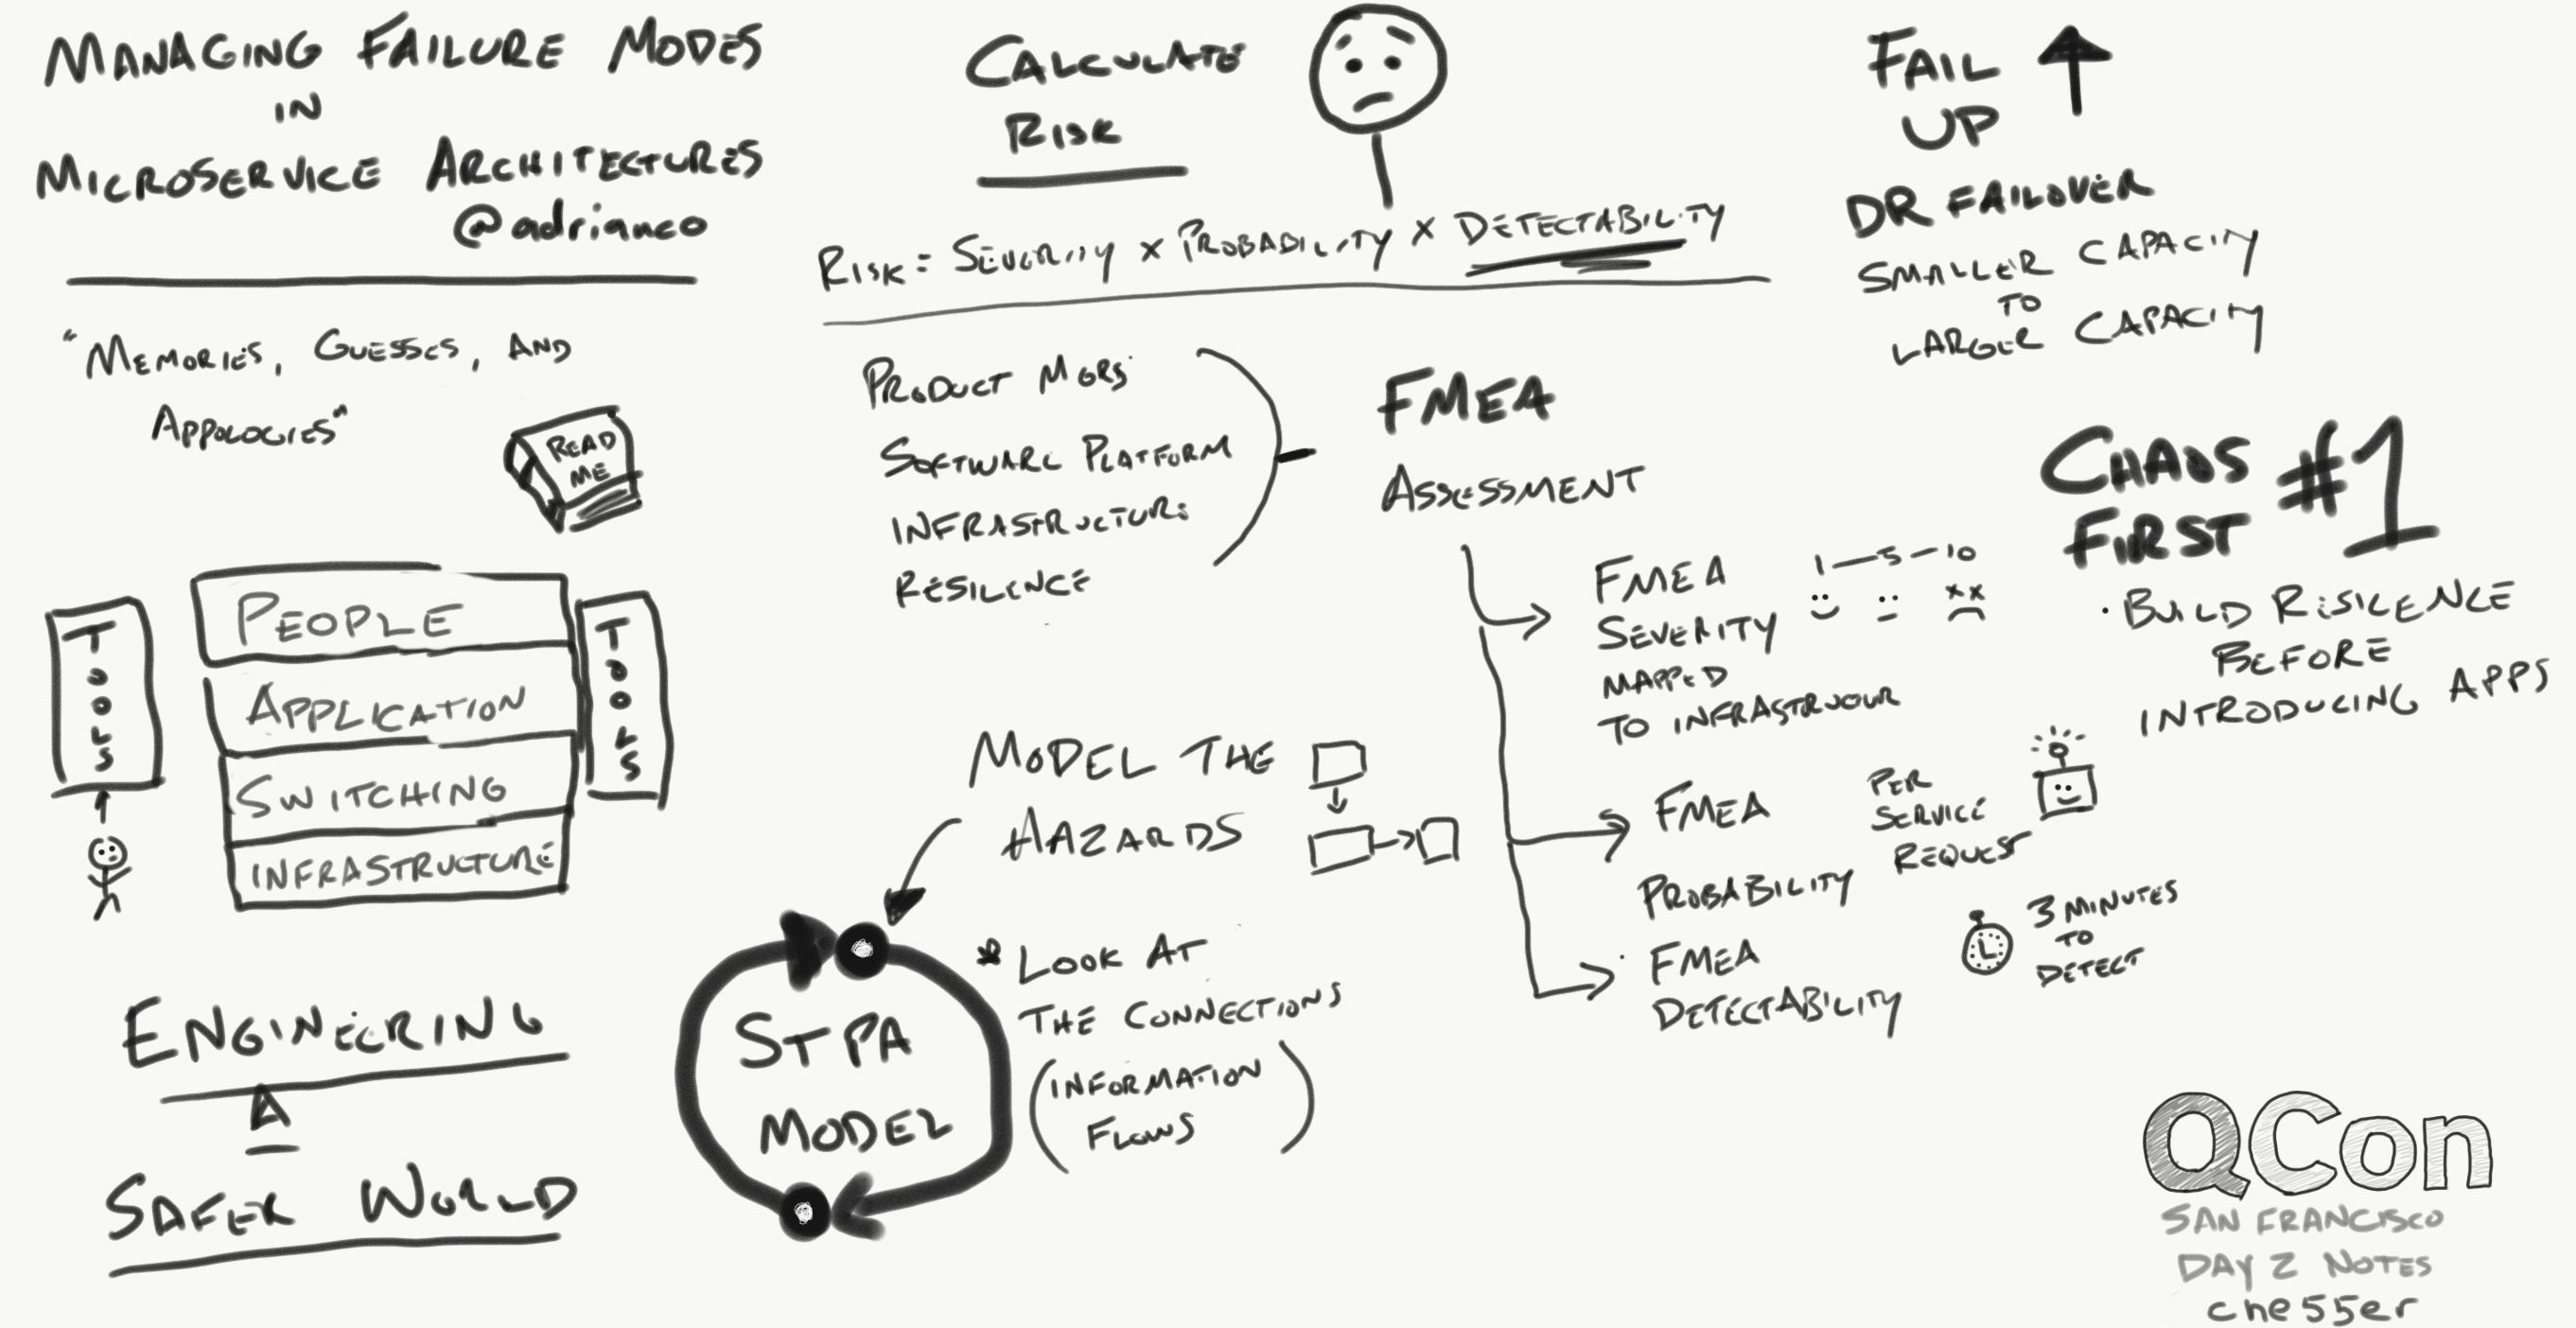 MANAGING FAILURE MODES
IN
MICROSERVICE ARCHITECTURES
@adrianco
"MEMORIES, GUESSES, AND
APPOLOGIES"
READ
ME
TOOLS
PEOPLE
APPLICATION
SWITCHING
INFRASTRUCTURE
TOOLS
ENGINEERING
A
SAFER WORLD
CALCULATE
RISK
RISK = SEVERITY x PROBABILITY x DETECTABILITY
PRODUCT MGRS
SOFTWARE PLATFORM
INFRASTRUCTURE
RESILENCE
FMEA
ASSESSMENT
FMEA
SEVERITY
MAPPED
TO INFRASTRUCUR
1 — 5 — 10
FMEA
PROBABILITY
PER
SERVICE
REQUEST
FMEA
DETECTABILITY
3 MINUTES
TO
DETECT
MODEL THE
HAZARDS
STPA
MODEL
* LOOK AT
THE CONNECTIONS
(INFORMATION
FLOWS)
FAIL
UP
DR FAILOVER
SMALLER CAPACITY
TO
LARGER CAPACITY
CHAOS
FIRST #1
· BUILD RISILENCE
BEFORE
INTRODUCING APPS
QCon
SAN FRANCISCO
DAY 2 NOTES
che55er